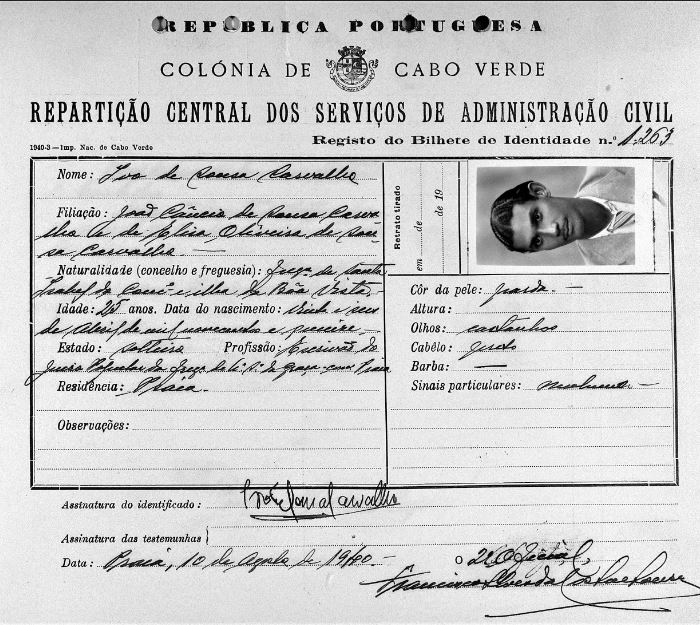 REPÚBLICA PORTUGUESA
COLÓNIA DE CABO VERDE
REPARTIÇÃO CENTRAL DOS SERVIÇOS DE ADMINISTRAÇÃO CIVIL
1940-3—Imp. Nac. de Cabo Verde
Registo do Bilhete de Identidade n.º 1.263
Nome: Ivo de Sousa Carvalho
Filiação: João Câncio de Sousa Carva-
lho e de Elisa Oliveira de Sou-
sa Carvalho
Naturalidade (concelho e freguesia): Freg.ª de Santa
Isabel do Conc.º e ilha da Bôa Vista
Idade: 25 anos. Data do nascimento: vinte e
de Abril de mil novecentos e quinze.
Estado: solteiro Profissão: Escrivão do
Juizo Popular da Freg.ª de N.ª S.ª da Graça Praia
Residência: Praia.
Observações:
Retrato tirado
em de de 19
Côr da pele: parda.—
Altura:
Olhos: castanhos
Cabêlo: preto
Barba: —
Sinais particulares: nenhum—
Assinatura do identificado: Ivo de Sousa Carvalho
Assinatura das testemunhas
Data: Praia, 10 de Agosto de 1940.—
O 2.º Oficial,
Francisco